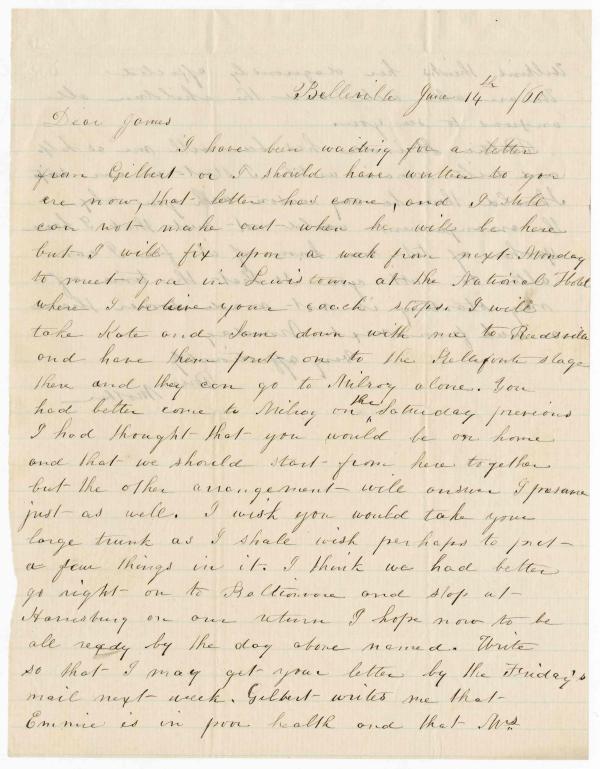 Belleville June 14th /60
Dear James
I have been waiting for a letter
from Gilbert or I should have written to you
ere now, that letter has come, and I still
can not make out when he will be here
but I will fix upon a week from next Monday
to meet you in Lewistown at the National Hotel
where I believe your coach stops. I will
take Kate and Sam down with me to Reedsville
and have them put on to the Bellefonte stage
there and they can go to Milroy alone. You
had better come to Milroy on the Saturday previous
I had thought that you would be on home
and that we should start from here together
but the other arrangement will answer I presume
just as well. I wish you would take your
large trunk as I shall wish perhaps to put
a few things in it. I think we had better
go right on to Baltimore and stop at
Harrisburg on our return I hope now to be
all ready by the day above named. Write
so that I may get your letter by the Friday's
mail next week. Gilbert writes me that
Emmie is in poor health and that Mrs